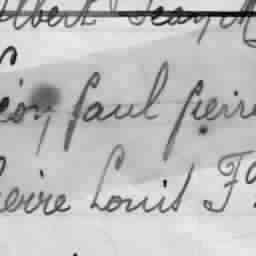 Albert Jean
Léon, Paul Pierre
Pierre Louis F